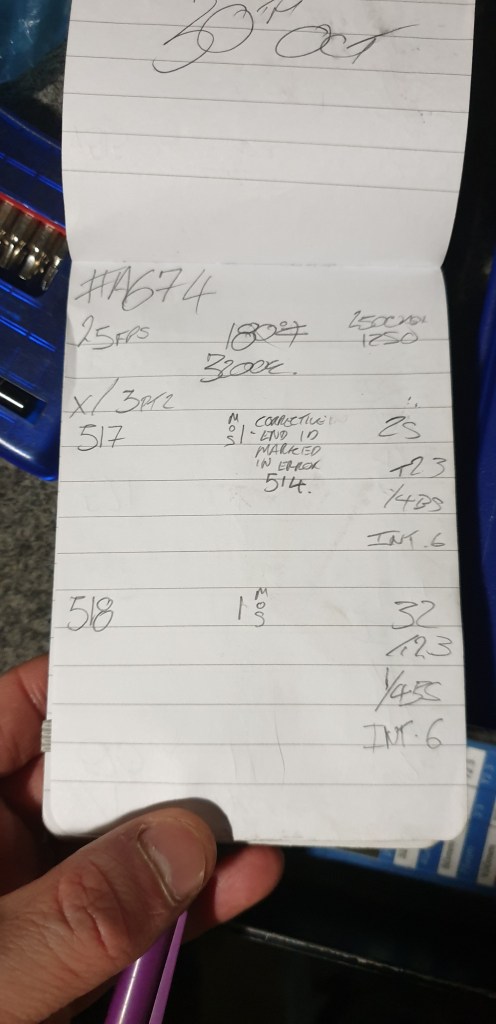 30TH OCT
#A674
25FPS 180° 
3200K. 1250
X/3PT2
517 MOS 1- CORRECTIVE 25
END ID
MARKED T2.3
IN ERROR
514. 1/4BS
INT. 6
518 1 MOS 32
T2.3
1/4BS
INT. 6